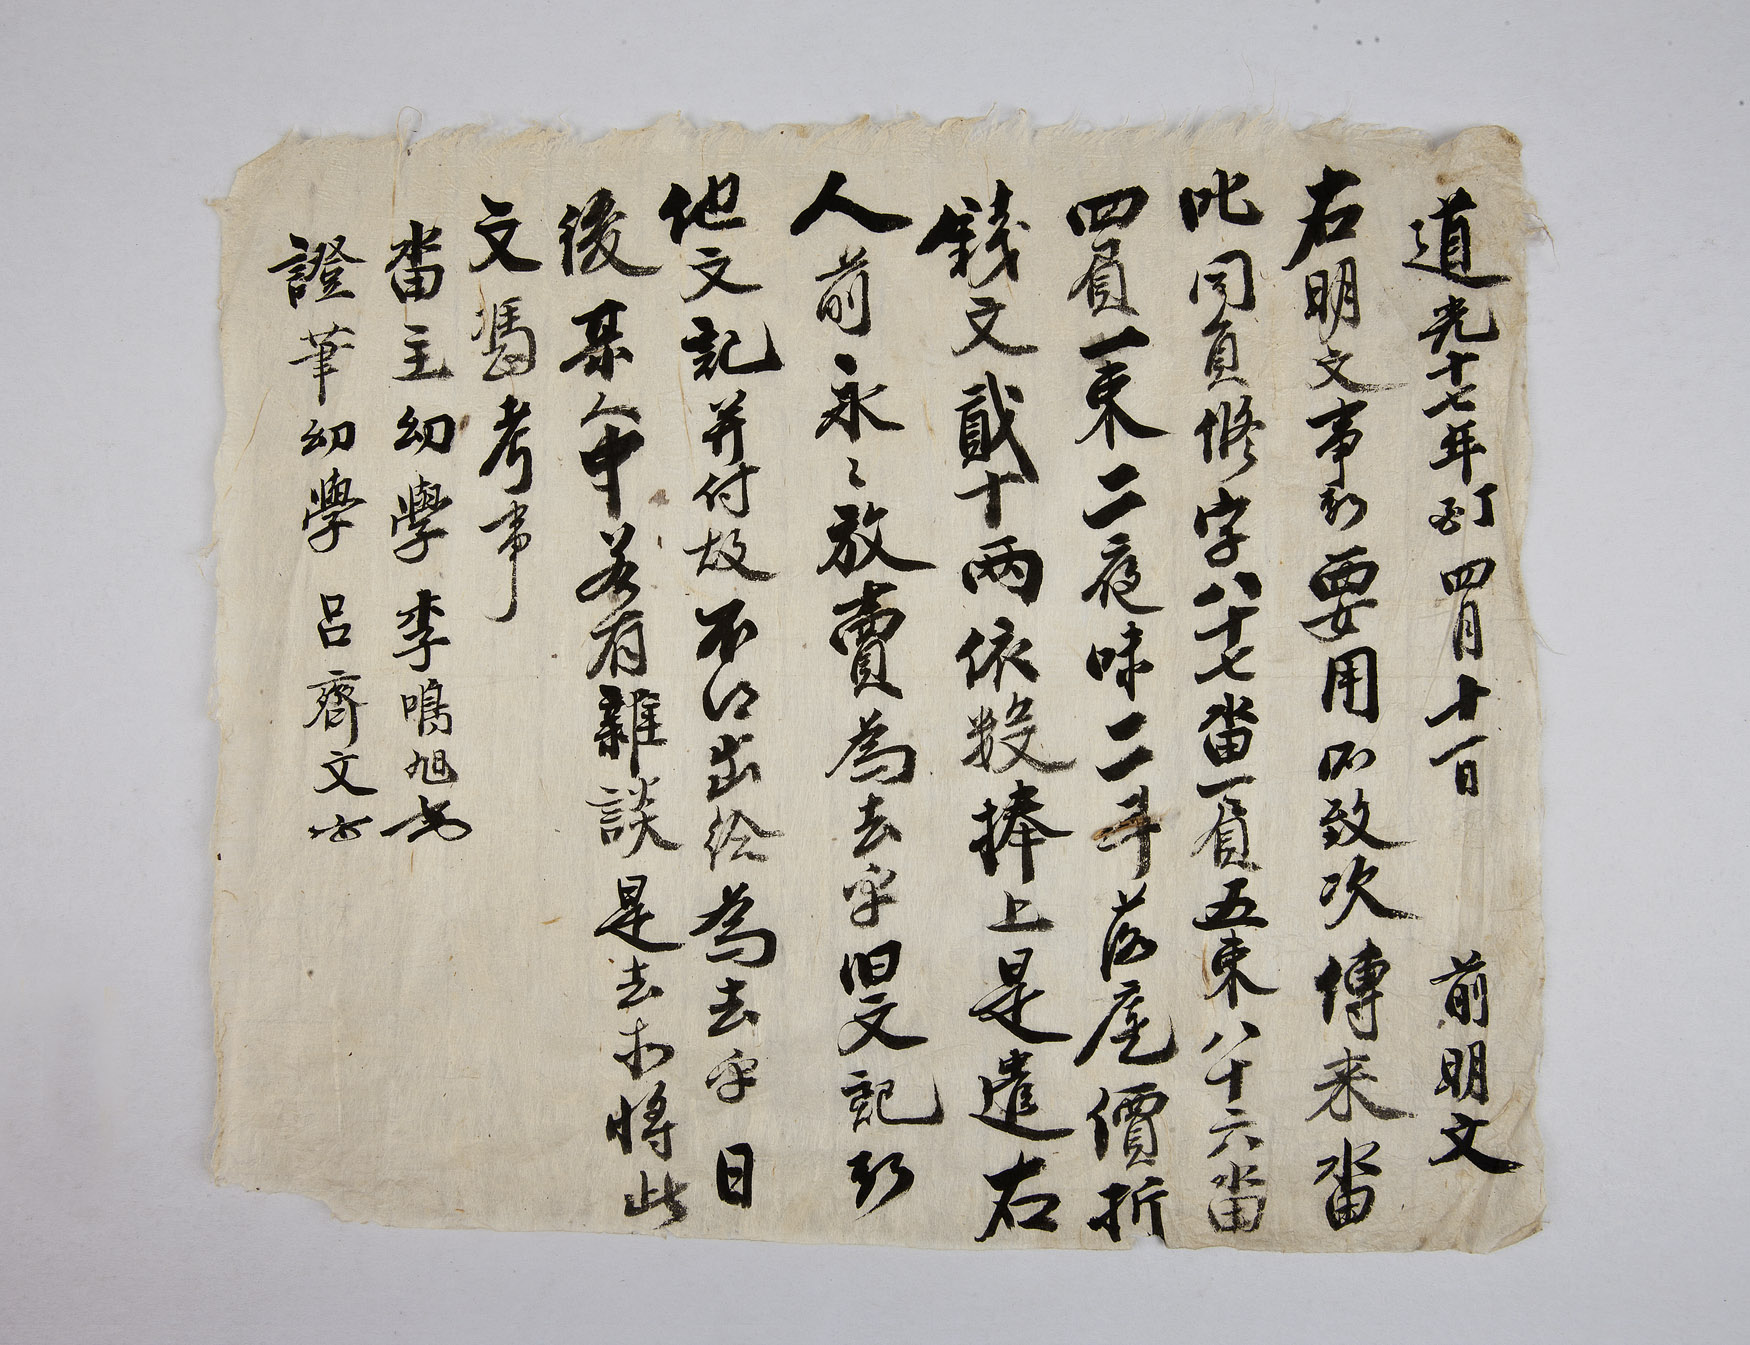 道光十七年丁酉四月十一日 前明文
右明文事段要用所致次傳来畓
叱同員修字八十七畓一員五束八十六畓
四員一束二夜味二斗落庫價折
錢文貳十両依数捧上是遣右
人前永々放賣為去乎旧文記段
他文記并付故不得出給為去乎日
後某人中若有雜談是去木將此
文憑考事
畓主幼學李鳴旭
證筆幼學呂齊文